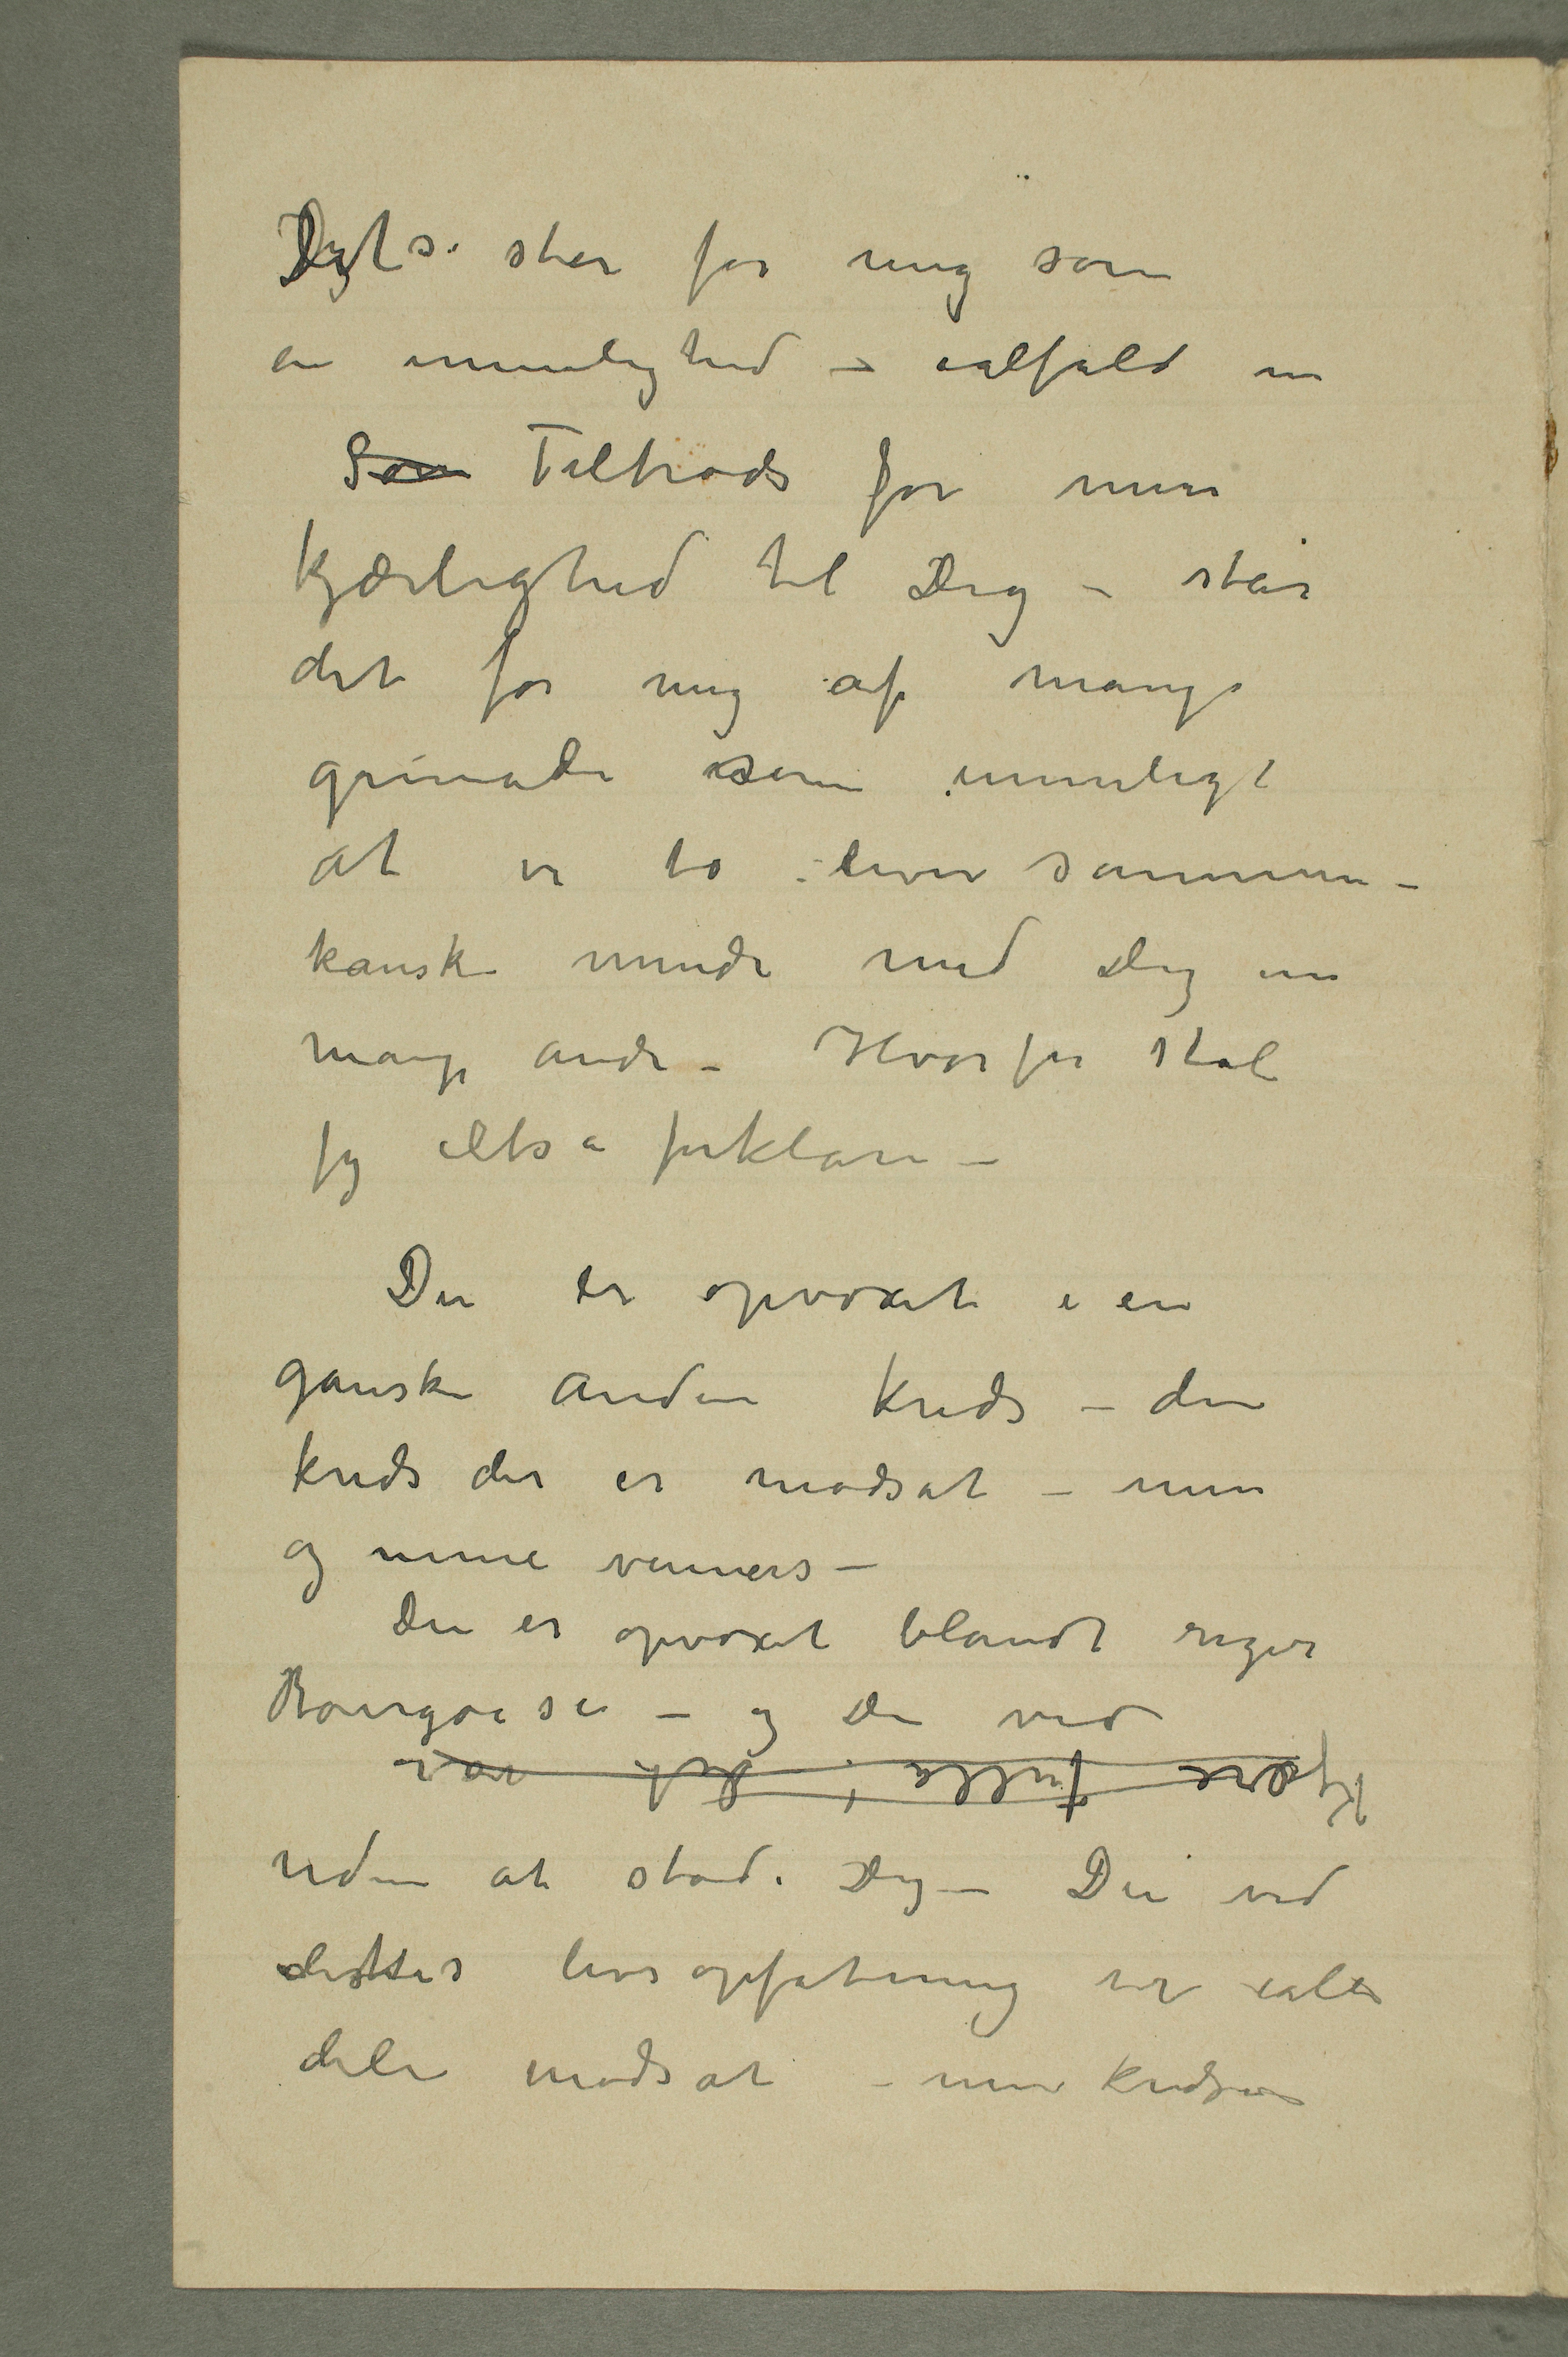 Dgts. står for mig som
en umulighed – ialfald nu
Som Tiltrods for min
kjærlighed til Dig – står
det for mig af mange
grunde som umuligt
at vi to lever sammen –
kanske mindre med Dig en
mange andre – Hvorfor skal
jeg altså forklare –
Du er opvoxet i en
ganske anden kreds – den
kreds der er modsat – min
og mine venners –
Du er opvoxet blandt riger
Bourgoise – og Du ved
Kjære Tulla, det var
uden at støde Dig – Du ved
dettes livsopfatning er i alle
dele modsat – min kredses